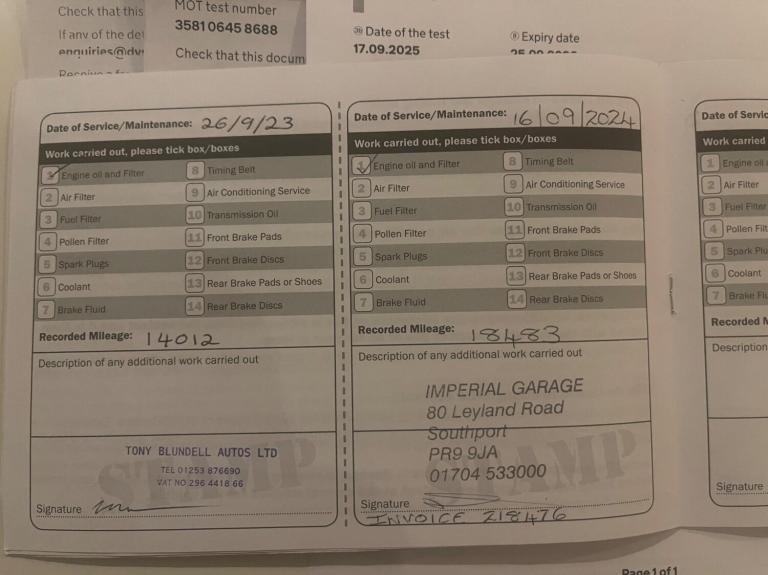 Check that this
If any of the det
enquiries@dv
MOT test number
3581 0645 8688
Check that this docum
Date of the test
17.09.2025
Expiry date
Date of Service/Maintenance: 26/9/23
Work carried out, please tick box/boxes
1 Engine oil and Filter
2 Air Filter
3 Fuel Filter
4 Pollen Filter
5 Spark Plugs
6 Coolant
7 Brake Fluid
8 Timing Belt
9 Air Conditioning Service
10 Transmission Oil
11 Front Brake Pads
12 Front Brake Discs
13 Rear Brake Pads or Shoes
14 Rear Brake Discs
Recorded Mileage: 14012
Description of any additional work carried out
STAMP
TONY BLUNDELL AUTOS LTD
TEL 01253 876690
VAT NO 296 4418 66
Signature
Date of Service/Maintenance: 16/09/2024
Work carried out, please tick box/boxes
1 Engine oil and Filter
2 Air Filter
3 Fuel Filter
4 Pollen Filter
5 Spark Plugs
6 Coolant
7 Brake Fluid
8 Timing Belt
9 Air Conditioning Service
10 Transmission Oil
11 Front Brake Pads
12 Front Brake Discs
13 Rear Brake Pads or Shoes
14 Rear Brake Discs
Recorded Mileage: 18483
Description of any additional work carried out
IMPERIAL GARAGE
80 Leyland Road
Southport
PR9 9JA
01704 533000
STAMP
Signature
INVOICE 218476
Date of Servic
Work carried
1 Engine oil a
2 Air Filter
3 Fuel Filter
4 Pollen Filt
5 Spark Plu
6 Coolant
7 Brake Flu
Recorded M
Description
Signature
Page 1 of 1